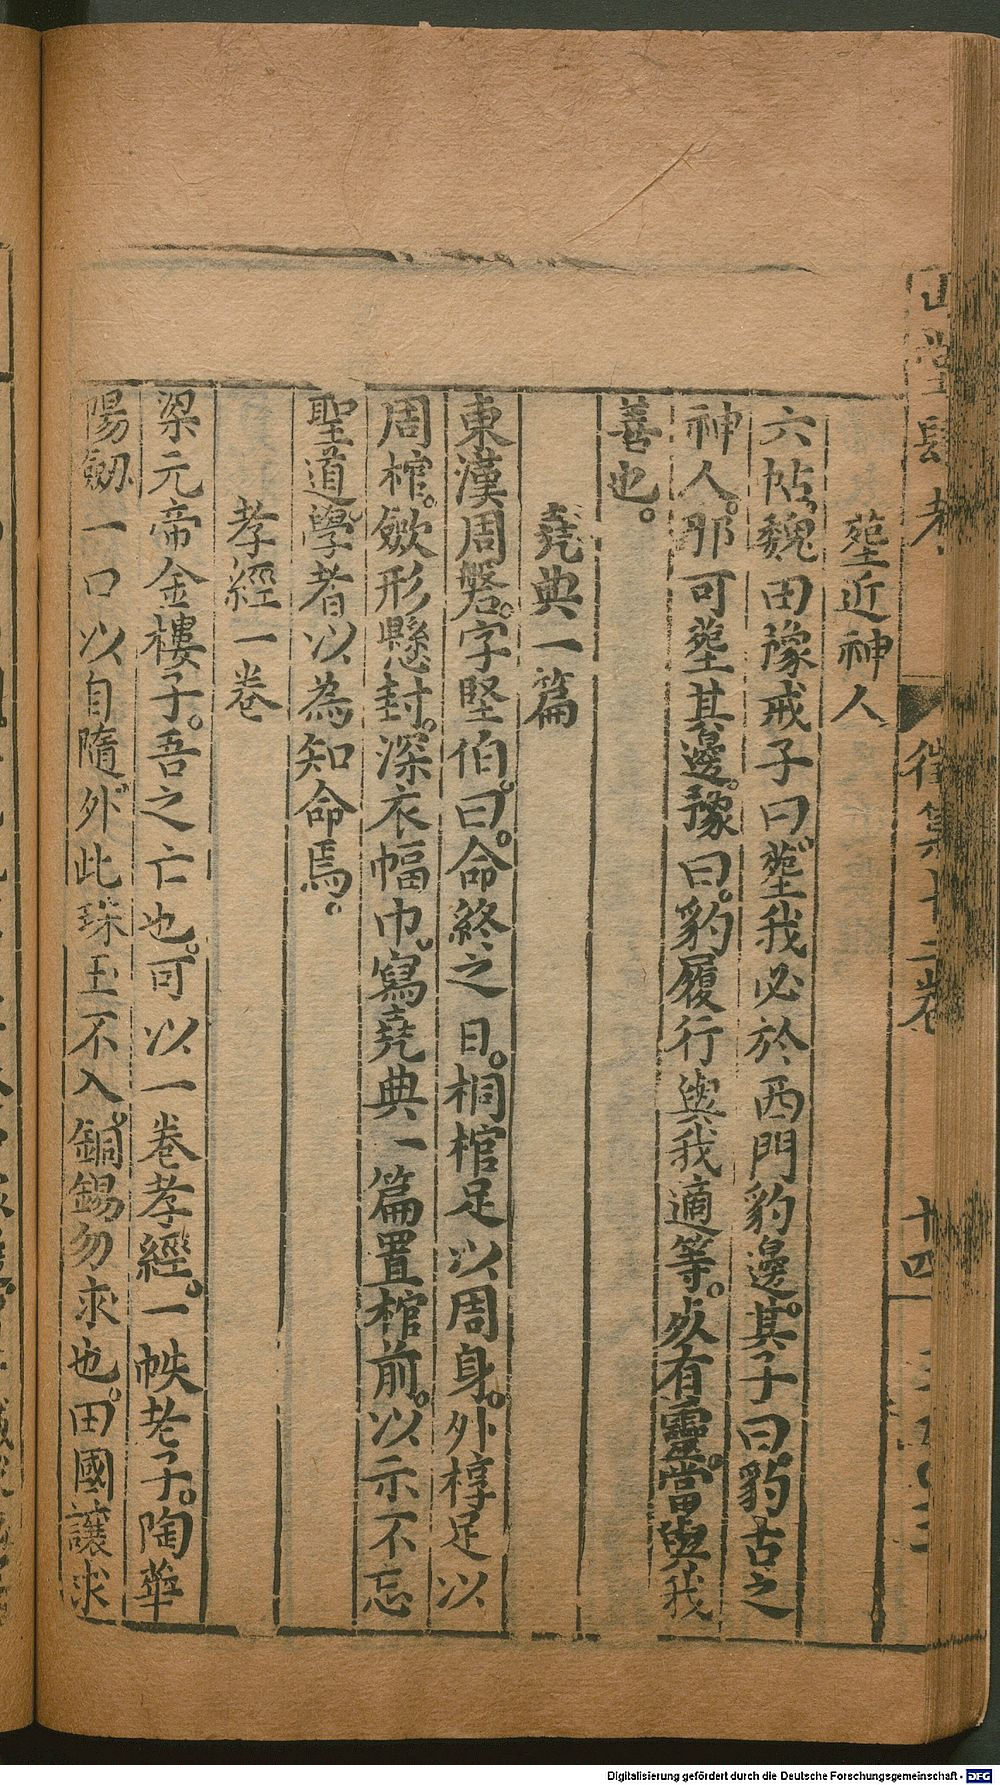 山堂肆考 徵集十二卷 十四
塟近神人
六帖魏田豫戒子曰塟我必於西門豹邊其子曰豹古之
神人那可塟其邊豫曰豹履行與我適等死有靈當與我
善也
堯典一篇
東漢周磐字堅伯曰命終之日桐棺足以周身外椁足以
周棺斂形懸封深衣幅巾寫堯典一篇置棺前以示不忘
聖道學者以為知命焉
孝經一卷
梁元帝金樓子吾之亡也可以一卷孝經一帙老子陶華
陽劒一口以自隨外此珠玉不入銅錫勿求也田國讓求
Digitalisierung gefördert durch die Deutsche Forschungsgemeinschaft - DFG